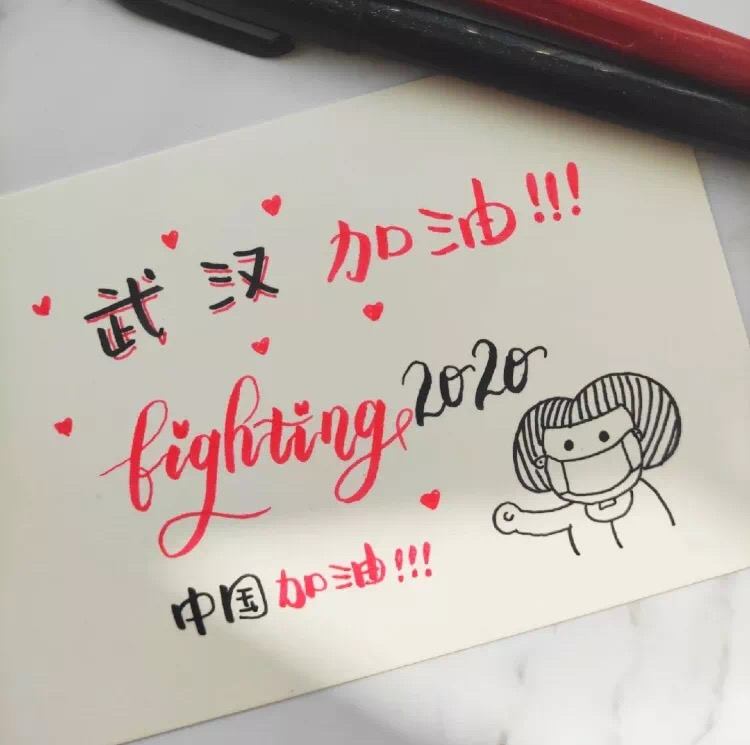 武汉 加油!!!
fighting 2020
中国加油!!!